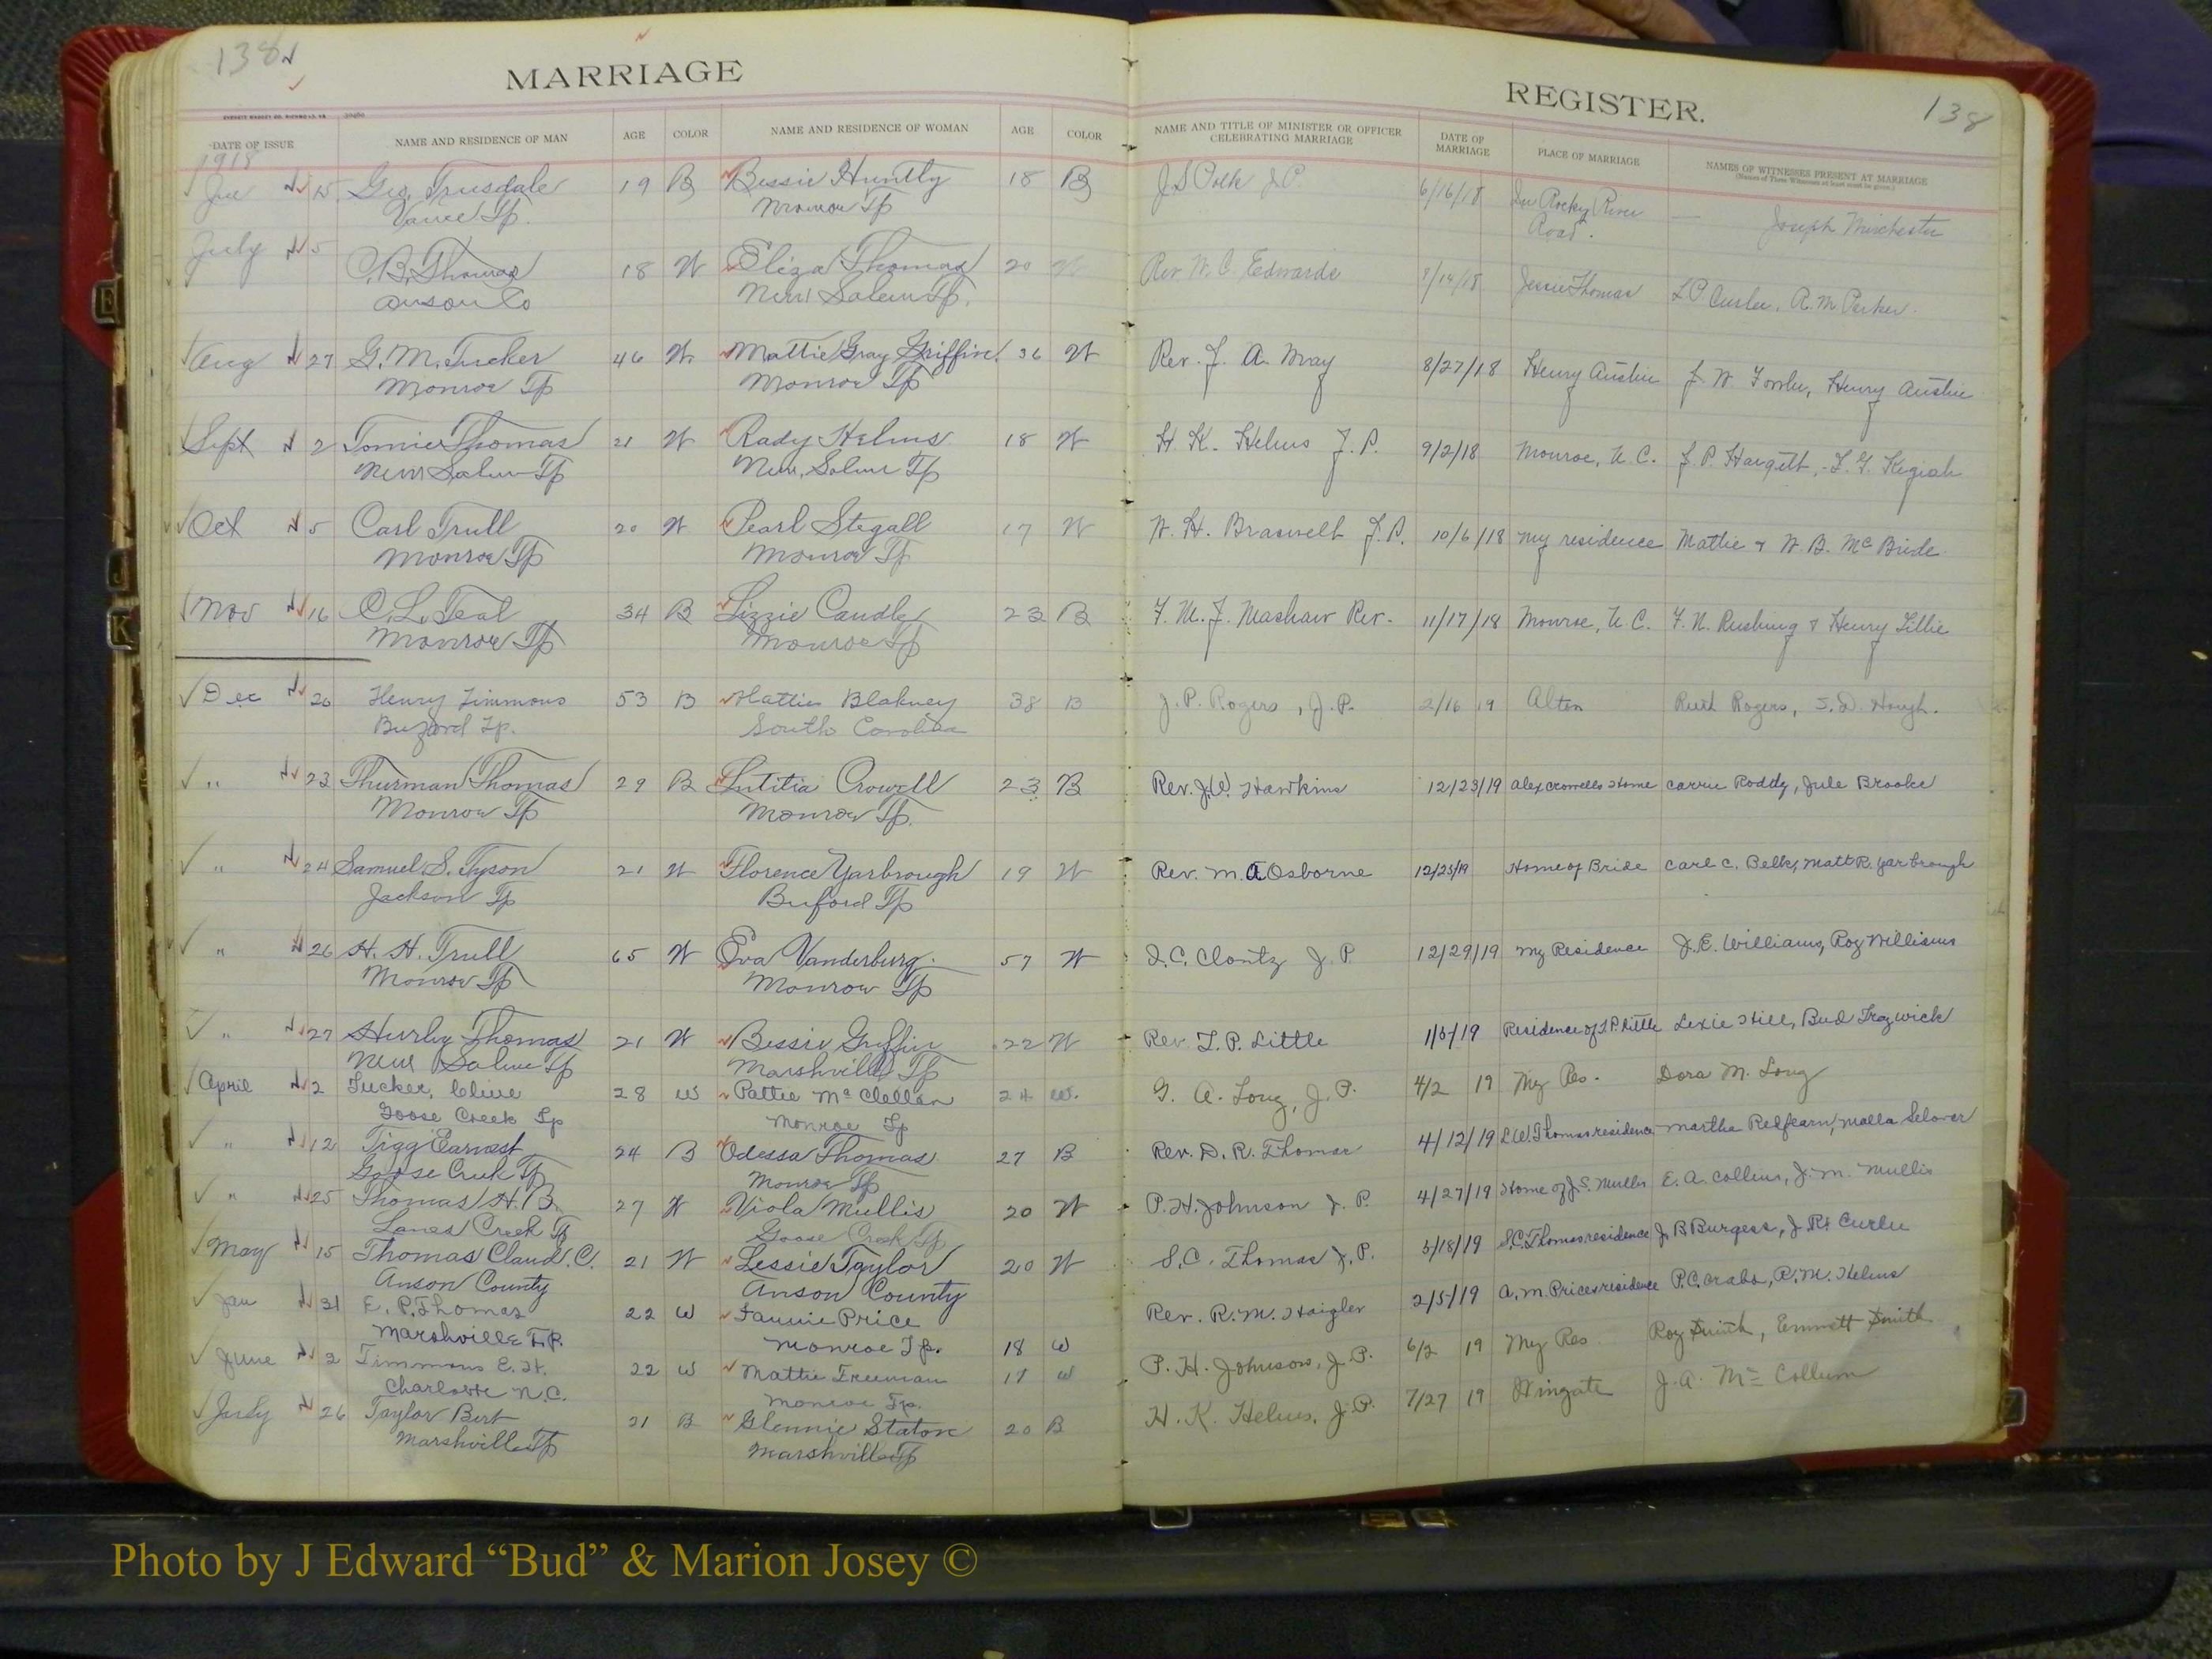 138
MARRIAGE REGISTER. 138
DATE OF ISSUE NAME AND RESIDENCE OF MAN AGE COLOR NAME AND RESIDENCE OF WOMAN AGE COLOR NAME AND TITLE OF MINISTER OR OFFICER CELEBRATING MARRIAGE DATE OF MARRIAGE PLACE OF MARRIAGE NAMES OF WITNESSES PRESENT AT MARRIAGE
(Names of Three Witnesses at least must be given.)
1918
15 Geo. Trusdale 19 B Bessie Huntly 18 B J S Polk J.P. 6/16/18 Rocky River Joseph Winchester
Vance Tp. Monroe Tp Road.
July 5 C. B. Thomas 18 W Eliza Thomas 20 W Rev. W. C. Edwards /14/18 Jessie Thomas L P R. M. Parker.
Anson Co New Salem Tp.
Aug 27 G. M. Tucker 46 W. Mattie Gray Griffin 36 W Rev. J. A. Bray 8/27/18 Henry Austin J. W. Fowler, Henry Austin
Monroe Tp Monroe Tp
Sept 2 Tomie Thomas 21 W Rady Helms 18 W H. K. Helms J. P. 9/2/18 Monroe, N.C. J. P. Hargett,
New Salem Tp New, Salem Tp
Oct 5 Carl Trull 20 W Pearl Stegall 17 W W. H. Braswell J. P. 10/6/18 my residence Mattie & W. B. McBride
Monroe Tp Monroe Tp
Nov 16 C. L. Teal 34 B Lizzie Caudle 23 B F. M. J. Mashaw Rev. 11/17/18 Monroe, N.C. F. N. Rushing & Henry Lillie
Monroe Tp Monroe Tp
Dec 26 Henry Timmons 53 B Hattie Blakney 38 B J. P. Rogers, J. P. 2/16 19 Alton Ruth Rogers, S. D. Hough.
Buford Tp. South Carolina
" 23 Thurman Thomas 29 B Lutitia Crowell 23 B Rev. J. W. Hawkins 12/23/19 Alex Crowells Home Carrie Roddy, Jule Brooks
Monroe Tp Monroe Tp.
" 24 Samuel S. Tyson 21 W Florence Yarbrough 19 W Rev. M. A Osborne 12/25/19 Home of Bride Carl C. Belk, Matt R. Yarbrough
Jackson Tp Buford Tp
" 26 H. H. Trull 65 W Eva Vanderburg. 57 W I. C. Clontz J. P. 12/29/19 My Residence J. E. Williams, Roy Williams
Monroe Tp Monroe Tp
" 27 Hurley Thomas 21 W Bessie Griffin 22 W Rev. T. P. Little 1/5/19 Residence of T P Little Lexie Hill, Bud Trazwick
New Salem Tp Marshville Tp
April 2 Tucker, Cline 28 W Pattie McClellan 24 W. G. A. Long, J. P. 4/2 19 My Res. Dora M. Long
Goose Creek Tp Monroe Tp
" 12 Tigg Earnest 24 B Odessa Thomas 27 B Rev. D. R. Thomas 4/12/19 L. W. Thomas residence Martha Redfearn, Malla Selover
Goose Creek Tp Monroe Tp
" 25 Thomas H. B. 27 W Viola Mullis 20 W P. H. Johnson J. P. 4/27/19 Home of J. S. Mullis E. A. Collins, J. M. Mullis
Lanes Creek Tp Goose Creek Tp
May 15 Thomas Claud. C. 21 W Lessie Taylor 20 W S. C. Thomas J. P. 5/18/19 S. C. Thomas residence J. B Burgess, J. R. Curlee
Anson County Anson County
Jan 31 E. P. Thomas 22 W Fannie Price 18 W Rev. R. M. Haigler 2/5/19 A. M. Prices residence P. C. Crabo, R. M. Helms
Marshville T.P. Monroe Tp.
June 2 Timmons E. H. 22 W Mattie Freeman 17 W P. H. Johnson, J. P. 6/2 19 My Res Roy Smith, Emmett Smith
Charlotte N.C. Monroe Tp.
July 26 Taylor Bert 21 B Glennie Staton 20 B H. K. Helms, J. P. 7/27 19 Wingate J. A. McCollum
Marshville Tp Marshville Tp
Photo by J Edward “Bud” & Marion Josey ©